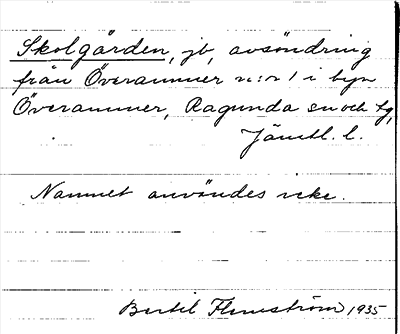 Skolgården, jb, avsöndring
från Överammer n:r 1 i byn
Överammer, Ragunda sn och tg,
Jämtl. l.
Namnet användes icke.
Bertil Flemström, 1935